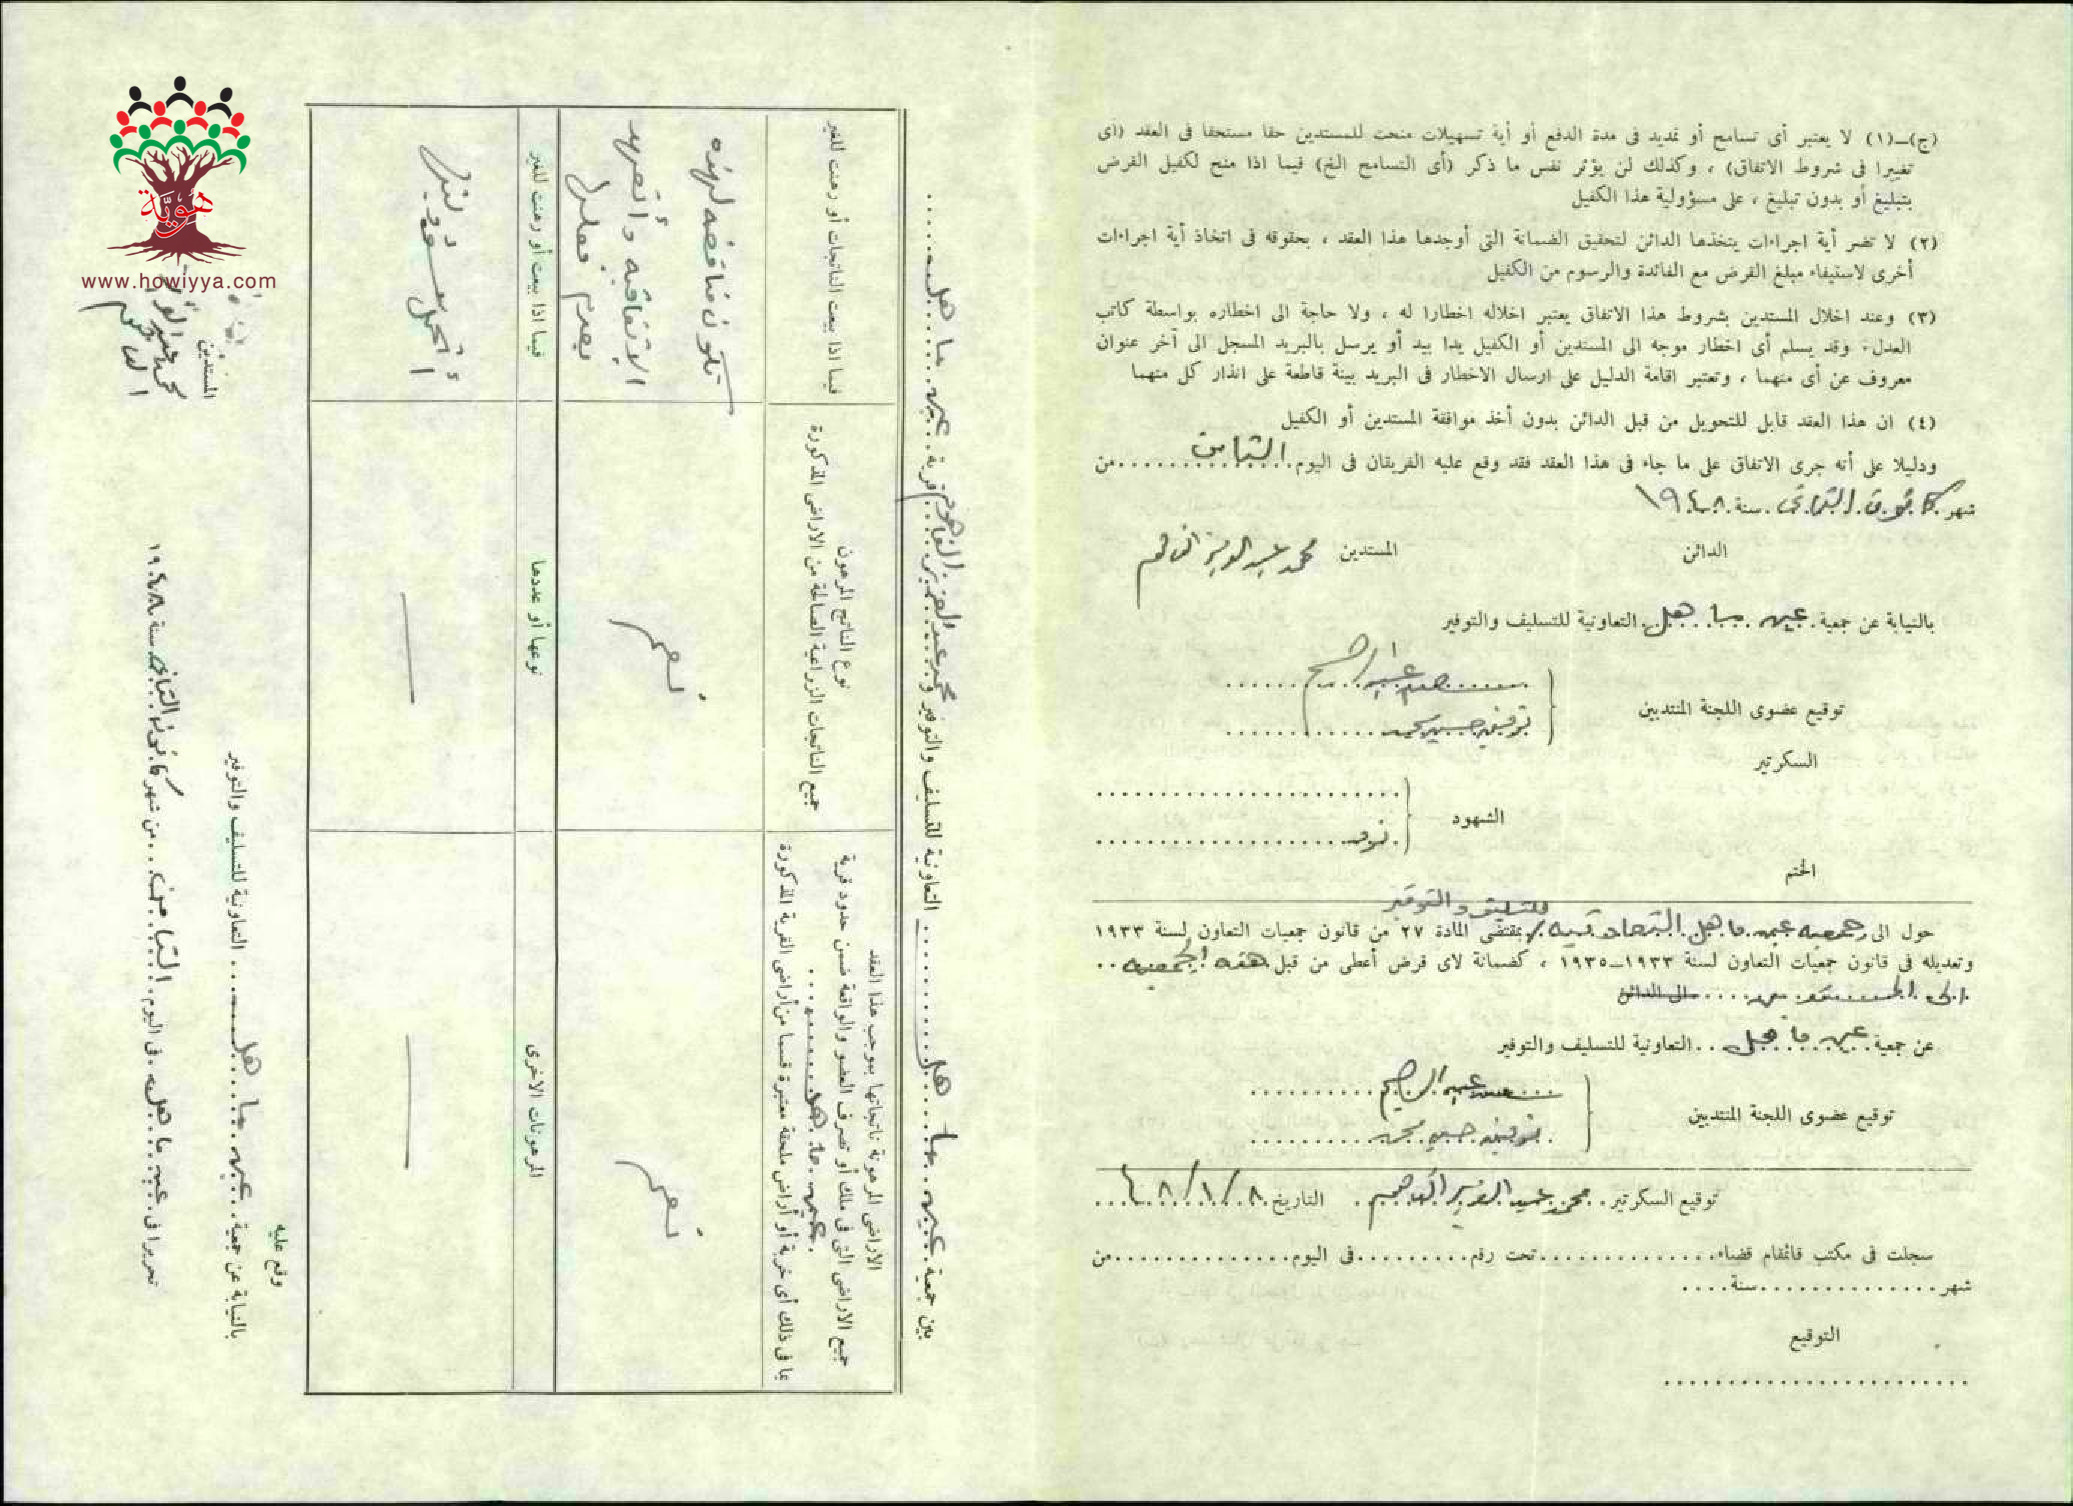 (ج)ـ(١) لا يعتبر أى تسامح أو تمديد فى مدة الدفع أو أية تسهيلات منحت للمستدين حقا مستحقا فى العقد (أى
تغييرا فى شروط الاتفاق) ، وكذلك لن يؤثر نفس ما ذكر (أى التسامح الخ) فيما اذا منح لكفيل القرض
بتبليغ أو بدون تبليغ ، على مسؤولية هذا الكفيل
(٢) لا تضر أية اجراءات يتخذها الدائن لتحقيق الضمانة التى أوجدها هذا العقد ، بحقوقه فى اتخاذ أية اجراءات
أخرى لاستيفاء مبلغ القرض مع الفائدة والرسوم من الكفيل
(٣) وعند اخلال المستدين بشروط هذا الاتفاق يعتبر اخلاله اخطارا له ، ولا حاجة الى اخطاره بواسطة كاتب
العدل، وقد يسلم أى اخطار موجه الى المستدين أو الكفيل يدا بيد أو يرسل بالبريد المسجل الى آخر عنوان
معروف عن أى منهما ، وتعتبر اقامة الدليل على ارسال الاخطار فى البريد بينة قاطعة على انذار كل منهما
(٤) ان هذا العقد قابل للتحويل من قبل الدائن بدون أخذ موافقة المستدين أو الكفيل
ودليلا على أنه جرى الاتفاق على ما جاء فى هذا العقد فقد وقع عليه الفريقان فى اليوم الثامن من
شهر كانون الثانى سنة ١٩٤٨
الدائن المستدين محمد عبد العزيز
بالنيابة عن جمعية عين ماهل التعاونية للتسليف والتوفير
توقيع عضوى اللجنة المنتدبين
توفيق حسين محمد
السكرتير
الشهود
الختم
للتسليف والتوفير
حول الى جمعيه عين ماهل التعاونيه بمقتضى المادة ٢٧ من قانون جمعيات التعاون لسنة ١٩٣٣
وتعديله فى قانون جمعيات التعاون لسنة ١٩٣٣ـ١٩٣٥ ، كضمانة لاى قرض أعطى من قبل هذه الجمعيه
الى الدائن
عن جمعية عين ماهل التعاونية للتسليف والتوفير
عبد الرحيم
توقيع عضوى اللجنة المنتدبين
توفيق حسين محمد
توقيع السكرتير محمد عبد العزيز التاريخ ٤٨/١/٨
سجلت فى مكتب قائمقام قضاء تحت رقم فى اليوم من
شهر سنة
التوقيع
بين جمعية عين ماهل التعاونية للتسليف والتوفير و محمد عبد العزيز قرية عين ماهل
الاراضى المرهونة ناتجاتها بموجب هذا العقد
جميع الاراضى التى فى ملك أو تصرف العضو والواقعة ضمن حدود قرية
عين ماهل
بما فى ذلك أى خربة أو أراض ملحقة معتبرة قسما من أراضى القرية المذكورة
نوع الناتج المرهون
جميع الناتجات الزراعية الصالحة من الاراضى المذكورة
فيما اذا بيعت الناتجات أو رهنت للغير
نعم
نعم
تكون مناقضه لهذه
الإتفاقيه وأتعهد
بعدم فعلها
المرهونات الاخرى
نوعها أو عددها
فيما اذا بيعت أو رهنت للغير
وقع عليه
بالنيابة عن جمعية عين ماهل التعاونية للتسليف والتوفير
المستدين
محمد عبد العزيز
تحريرا فى عين ماهل فى اليوم الثامن من شهر كانون الثانى سنة ١٩٤٨
هوية
www.howiyya.com